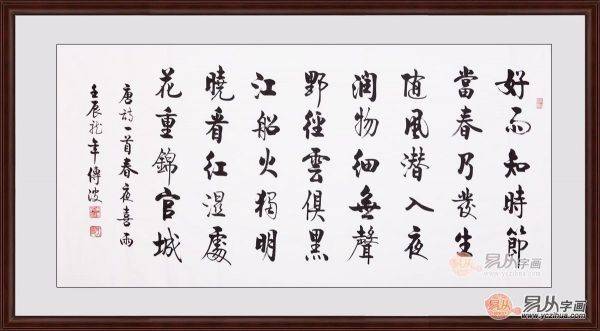 好雨知時節
當春乃發生
随風潜入夜
润物細無聲
野徑雲俱黑
江船火獨明
曉看紅濕處
花重錦官城
唐詩一首春夜喜雨
壬辰龍年傳波
易从字画
www.yczihua.com
易从字画
www.yczihua.com